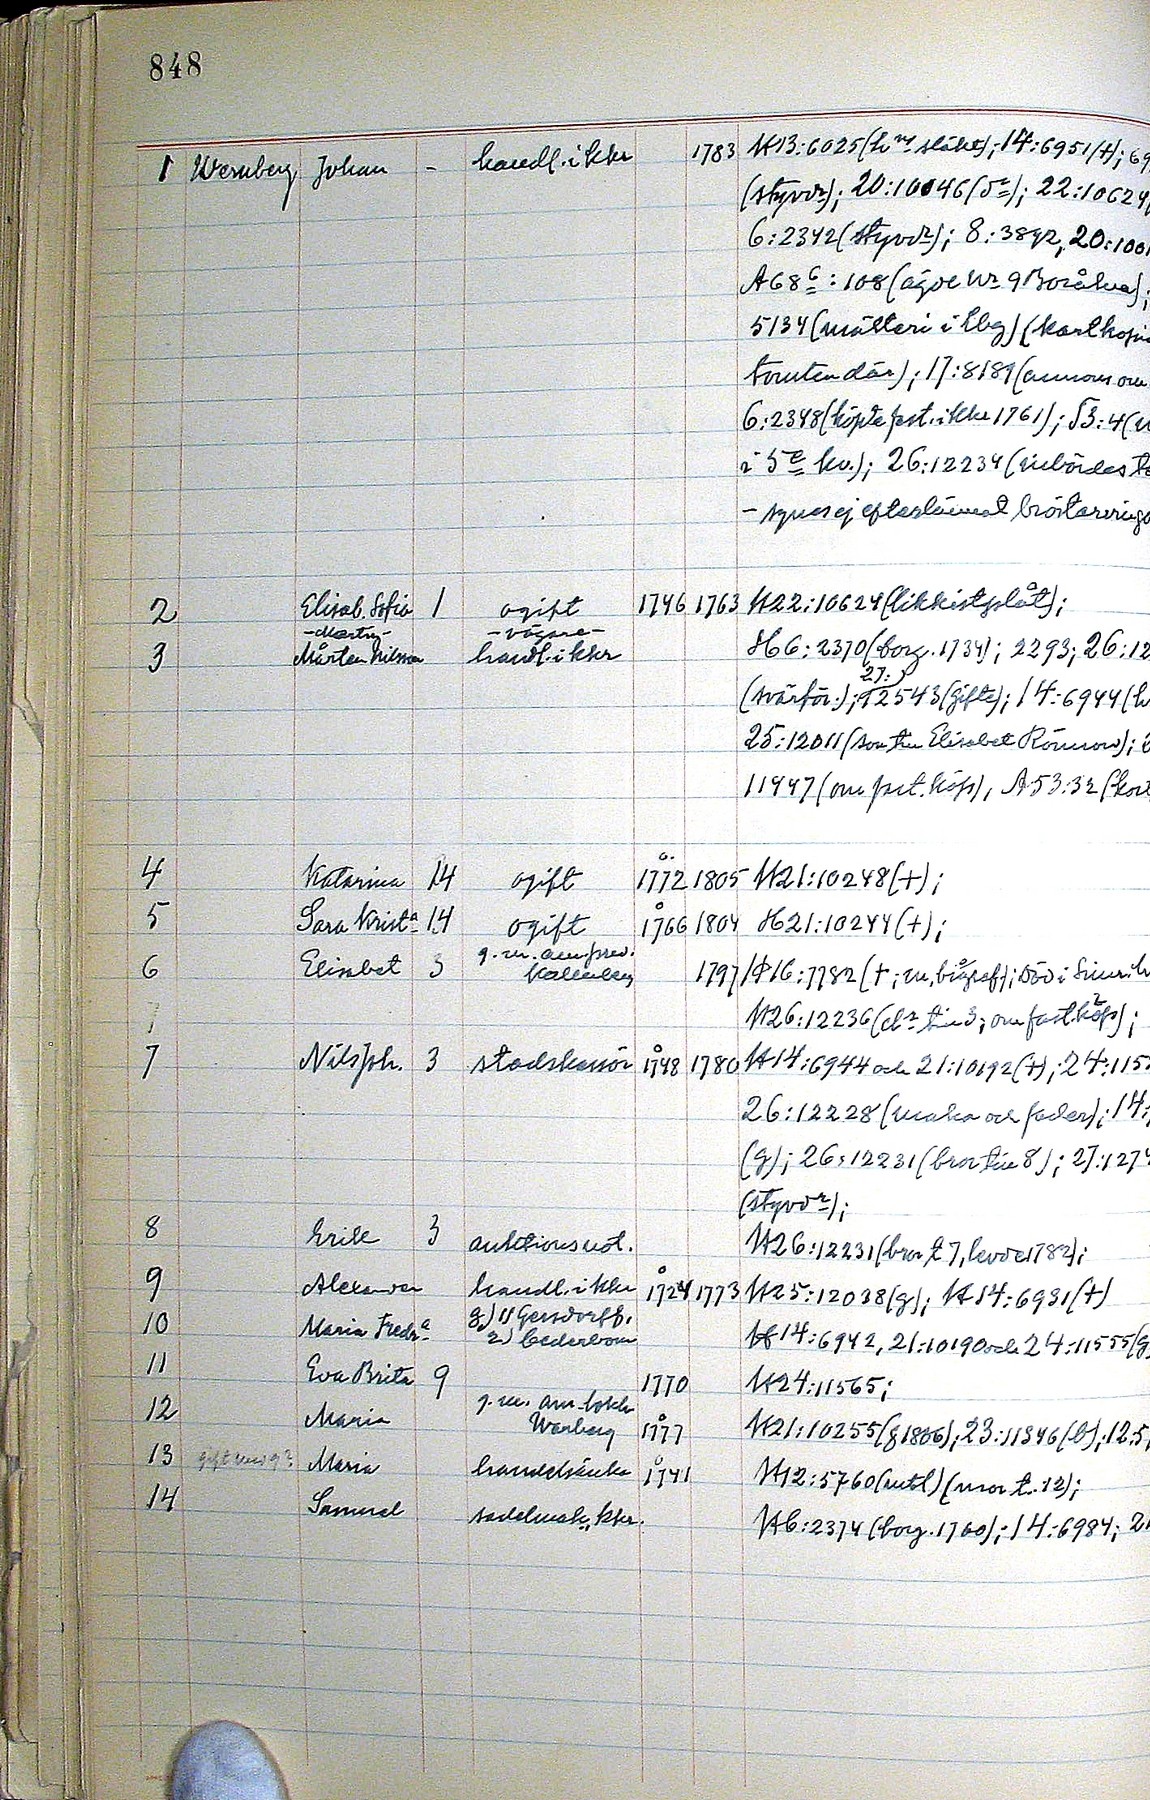 848
1 Wernberg Johan - handl. i kkr 1783 H13:6025(h släkt); 14:6951(+); 69
(styvdr); 20:10046(sr); 22:10624
6:2342(styvdr); 8:3892, 20:1001
A68c:108(ägde nr 9 );
5134(mälteri i hbg)(
tomten där); 17:8189(annons om
6:2348(köpte fast. i kkr 1761); 53:4(
i 5e kv.); 26:12234(inbördes te
- synes ej efterlämnat bröstarvinga
2 Elisab. Sofia 1 ogift 1746 1763 H22:10624(likkistplåt);
-Mårten- -vågare-
3 Mårten Nilsson handl. i kkr H6:2370(borg. 1734); 2293; 26:12
27:
(svärför.); 12543(gifte); 14:6944(h
25:12011(son t. Elisabet Rönnow);
11447(om fast. köp), A53:32(
4 Katarina 14 ogift 1772 1805 H21:10248(+);
5 Sara Krista 14 ogift 1766 1804 H21:10244(+);
6 Elisabet 3 g. m. 1797 H16:7782(+; m. biograf); död i
7 H26:12236(dr till 3; om fast.köp);
7 Nils Joh. 3 stadskassör 1748 1780 H14:6944 och 21:10192(+); 24:115
26:12228(maka och fader); 14:
(g); 26:12231(bror till 8); 27:127
(styvdr);
8 Erik 3 auktionsnot. H26:12231(bror t. 7, levde 1782);
9 Alexander handl. i kkr 1724 1773 H25:12038(g); H14:6931(+)
10 Maria Fredra g) 1) Gersdorff, H14:6942, 21:10190 och 24:11555(g
2) Cederbom
11 Eva Brita 9 1770 H24:11565;
12 Maria g. m. Warberg 1777 H21:10255(g 1806); 23:11346(b); 12:5
13 gift med 9? Maria handelsänka 1741 H12:5760(utl)(mor t. 12);
14 Samuel sadelmak., kkr. H6:2374(borg. 1760); 14:6984; 2